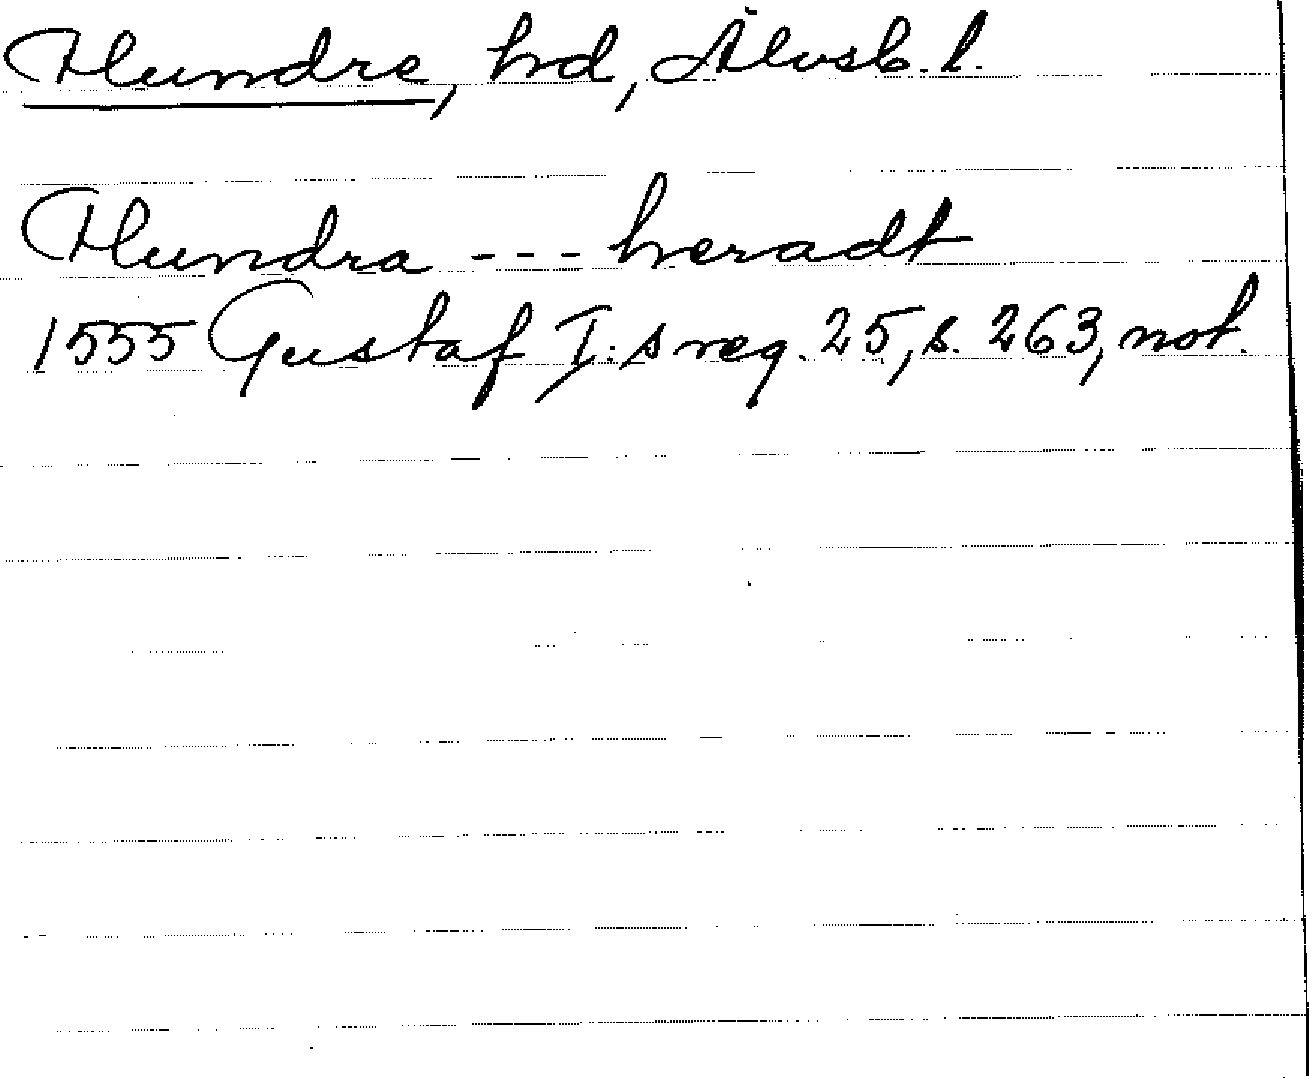 Flundre, hd, Älvsb. l.
Flundra --- heradt
1555 Gustaf I:s reg. 25, s. 263, not.